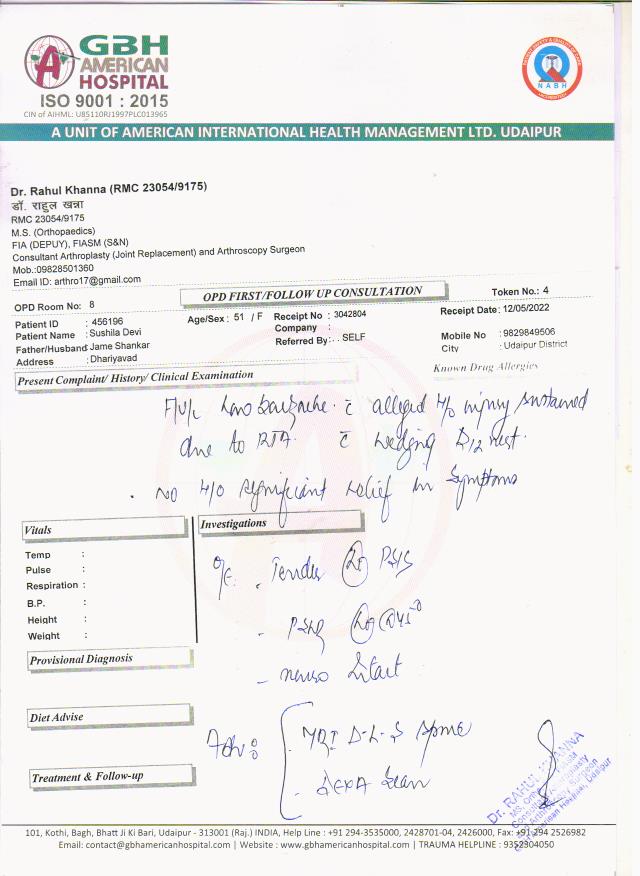 GBH
AMERICAN
HOSPITAL
ISO 9001 : 2015
CIN of AIHML: U85110RJ1997PLC013965
NABH
A UNIT OF AMERICAN INTERNATIONAL HEALTH MANAGEMENT LTD. UDAIPUR
Dr. Rahul Khanna (RMC 23054/9175)
डॉ. राहुल खन्ना
RMC 23054/9175
M.S. (Orthopaedics)
FIA (DEPUY), FIASM (S&N)
Consultant Arthroplasty (Joint Replacement) and Arthroscopy Surgeon
Mob.:09828501360
Email ID: arthro17@gmail.com
OPD Room No: 8 OPD FIRST/FOLLOW UP CONSULTATION Token No.: 4
Patient ID : 456196 Age/Sex : 51 / F Receipt No : 3042804 Receipt Date: 12/05/2022
Patient Name : Sushila Devi Company :
Father/Husband Jame Shankar Referred By: . . SELF Mobile No : 9829849506
Address : Dhariyavad City : Udaipur District
Present Complaint/ History/ Clinical Examination Known Drug Allergies
F/U/C alleged H/o injury sustained
due to RTA. c̄ wedging D12
No H/o significant relief in symptoms
Vitals Investigations
Temp :
Pulse :
Respiration :
B.P. :
Height :
Weight :
O/E. Tender PSIS
Provisional Diagnosis
- neuro Intact
Diet Advise
Adv: MRI D-L-S Spine
Treatment & Follow-up
DEXA Scan
Dr. RAHUL KHANNA
101, Kothi, Bagh, Bhatt Ji Ki Bari, Udaipur - 313001 (Raj.) INDIA, Help Line : +91 294-3535000, 2428701-04, 2426000, Fax: +91 294 2526982
Email: contact@gbhamericanhospital.com | Website : www.gbhamericanhospital.com | TRAUMA HELPLINE : 9352304050